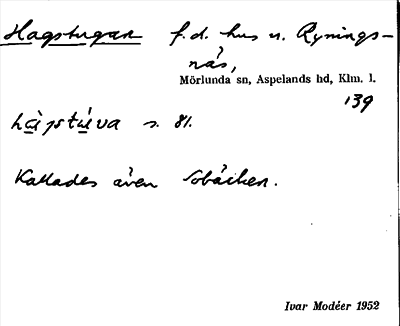 Hagstugan f.d. hus u. Rynings-
näs,
Mörlunda sn, Aspelands hd, Klm. l.
139
s. 81.
Kallades även Sobäcken.
Ivar Modéer 1952